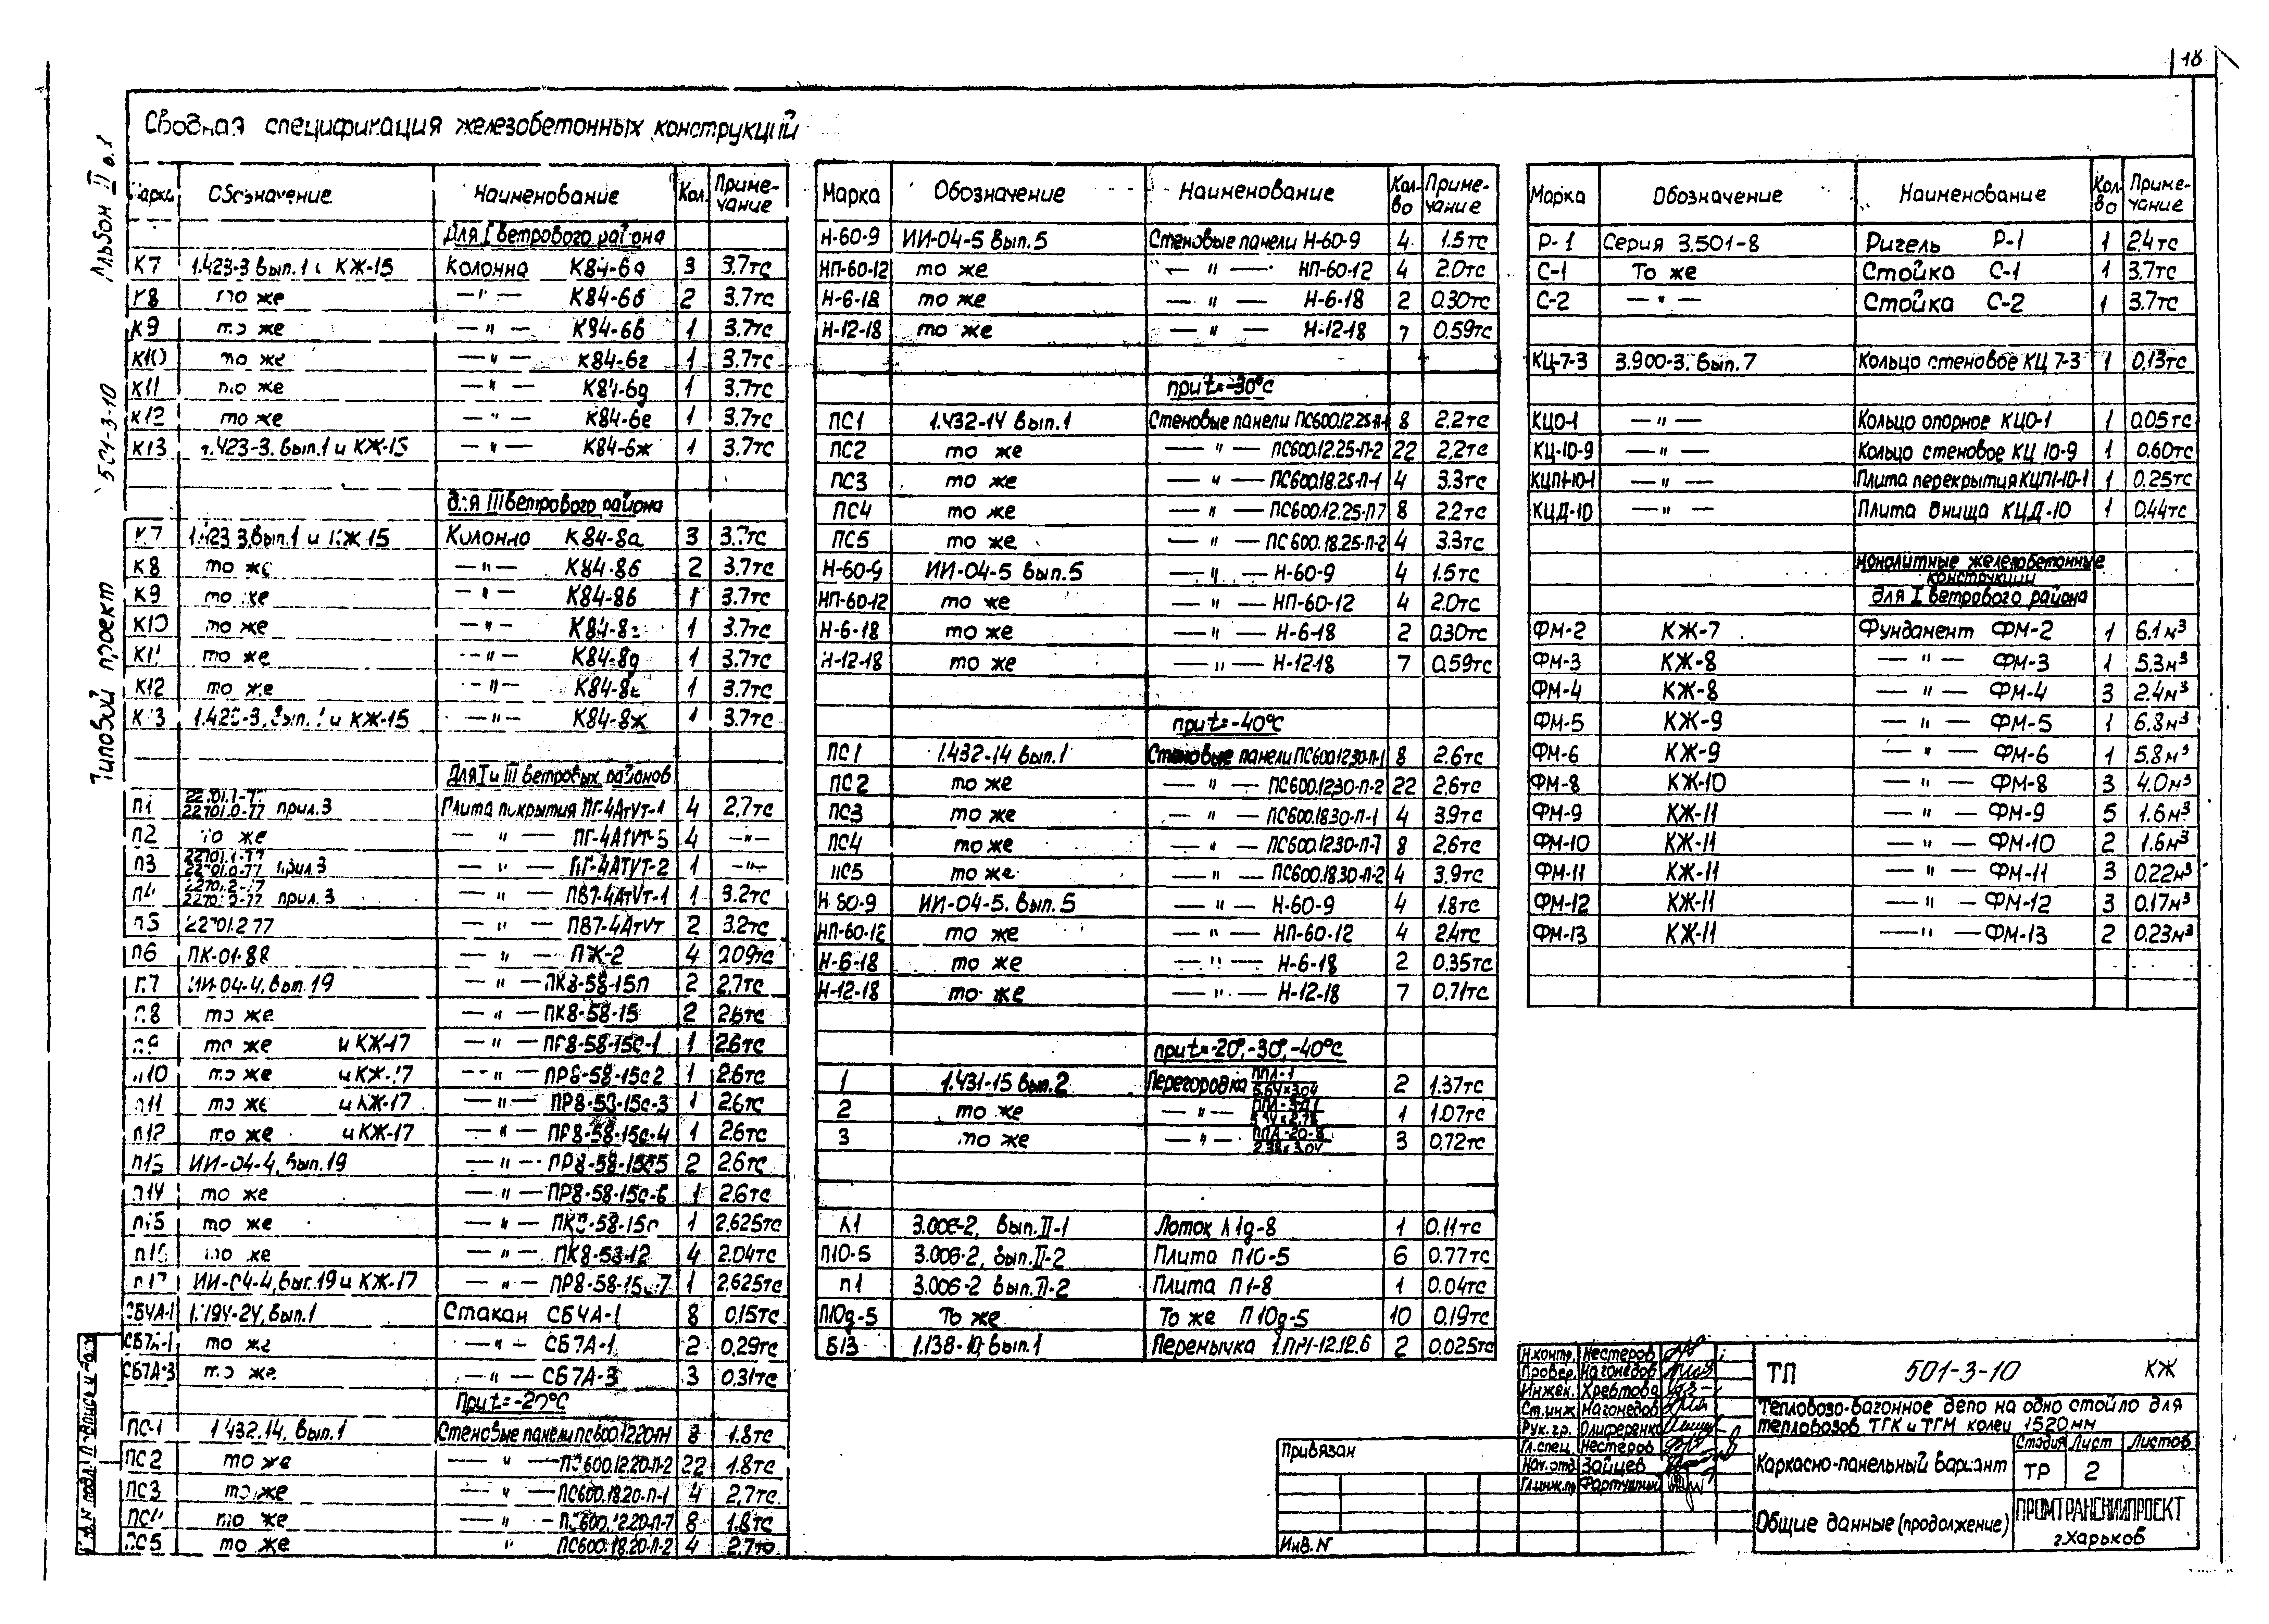 18
Сводная спецификация железобетонных конструкций
Альбом II
501-3-10
Типовой проект
Марка Обозначение Наименование Кол. Приме-чание
Для I ветрового района
К7 1.423-3 вып.1 и КЖ-15 Колонна К84-6а 3 3.7тс
К8 то же —"— К84-6б 2 3.7тс
К9 то же —"— К84-6в 1 3.7тс
К10 то же —"— К84-6г 1 3.7тс
К11 то же —"— К84-6д 1 3.7тс
К12 то же —"— К84-6е 1 3.7тс
К13 1.423-3. вып.1 и КЖ-15 —"— К84-6ж 1 3.7тс
для III ветрового района
К7 1.423-3. вып.1 и КЖ-15 Колонна К84-8а 3 3.7тс
К8 то же —"— К84-8б 2 3.7тс
К9 то же —"— К84-8в 1 3.7тс
К10 то же —"— К84-8г 1 3.7тс
К11 то же —"— К84-8д 1 3.7тс
К12 то же —"— К84-8е 1 3.7тс
К13 1.423-3. вып.1 и КЖ-15 —"— К84-8ж 1 3.7тс
Для I и III ветровых районов
П1 22701.1-77 22701.0-77 прил.3 Плита покрытия ПГ-4АтVт-1 4 2.7тс
П2 то же —"— ПГ-4АтVт-3 4 —"—
П3 22701.1-77 22701.0-77 прил.3 —"— ПГ-4АТVТ-2 1 —"—
П4 22701.2-77 прил.3 —"— ПВ7-4АтVт-1 1 3.2тс
П5 22701.2-77 —"— ПВ7-4АтVт 2 3.2тс
П6 ПК-01-88 —"— ПЖ-2 4 2.09тс
П7 ИИ-04-4, вып.19 —"— ПК8-58-15п 2 2.7тс
П8 то же —"— ПК8-58-15 2 2.6тс
П9 то же и КЖ-17 —"— ПР8-58-15с-1 1 2.6тс
П10 то же и КЖ-17 —"— ПР8-58-15с2 1 2.6тс
П11 то же и КЖ-17 —"— ПР8-58-15с-3 1 2.6тс
П12 то же и КЖ-17 —"— ПР8-58-15с-4 1 2.6тс
П13 ИИ-04-4, вып.19 —"— ПР8-58-15с5 2 2.6тс
П14 то же —"— ПР8-58-15с-6 1 2.6тс
П15 то же —"— ПК8-58-15с 1 2.625тс
П16 то же —"— ПК8-58-12 4 2.04тс
П17 ИИ-04-4, вып.19 и КЖ-17 —"— ПР8-58-15с-7 1 2.625тс
СБ4А-1 1.194-24, вып.1 Стакан СБ4А-1 8 0,15тс
СБ7А-1 то же —"— СБ7А-1 2 0,29тс
СБ7А-3 то же —"— СБ7А-3 3 0.31тс
При t=-20°С
ПС-1 1.432.14, вып.1 Стеновые панели ПС600.12.20-П-1 8 1.8тс
ПС2 то же —"— ПС600.12.20-П-2 22 1.8тс
ПС3 то же —"— ПС600.18.20-П-1 4 2.7тс
ПС4 то же —"— ПС600.12.20-П-7 8 1.8тс
ПС5 то же " ПС600.18.20-П-2 4 2.7тс
Марка Обозначение Наименование Кол-во Приме-чание
Н-60-9 ИИ-04-5 вып.5 Стеновые панели Н-60-9 4 1.5тс
НП-60-12 то же —"— НП-60-12 4 2.0тс
Н-6-18 то же —"— Н-6-18 2 0.30тс
Н-12-18 то же —"— Н-12-18 7 0.59тс
при t=-30°С
ПС1 1.432-14 вып.1 Стеновые панели ПС600.12.25-П-1 8 2.2тс
ПС2 то же —"— ПС600.12.25-П-2 22 2,2тс
ПС3 то же —"— ПС600.18.25-П-1 4 3.3тс
ПС4 то же —"— ПС600.12.25-П7 8 2.2тс
ПС5 то же —"— ПС600.18.25-П-2 4 3.3тс
Н-60-9 ИИ-04-5 вып.5 —"— Н-60-9 4 1.5тс
НП-60-12 то же —"— НП-60-12 4 2.0тс
Н-6-18 то же —"— Н-6-18 2 0.30тс
Н-12-18 то же —"— Н-12-18 7 0.59тс
при t=-40°С
ПС1 1.432-14 вып.1 Стеновые панели ПС600.12.30-П-1 8 2.6тс
ПС2 то же —"— ПС600.12.30-П-2 22 2.6тс
ПС3 то же —"— ПС600.18.30-П-1 4 3.9тс
ПС4 то же " ПС600.12.30-П-7 8 2.6тс
ПС5 то же —"— ПС600.18.30-П-2 4 3.9тс
Н-60-9 ИИ-04-5. вып.5 —"— Н-60-9 4 1.8тс
НП-60-12 то же —"— НП-60-12 4 2.4тс
Н-6-18 то же —"— Н-6-18 2 0.35тс
Н-12-18 то же —"— Н-12-18 7 0.71тс
при t=-20°,-30°,-40°С
1 1.431-15 вып.2 Перегородка ППЛ-1 5.64×3.04 2 1.37тс
2 то же —"— 1 1.07тс
3 то же —"— ППА-20-8 2.38×3.04 3 0.72тс
Л1 3.006-2, вып.II-1 Лоток Л1д-8 1 0.11тс
П10-5 3.006-2, вып.II-2 Плита П10-5 6 0.77тс
П1 3.006-2 вып.II-2 Плита П1-8 1 0.04тс
П10д-5 То же То же П10д-5 10 0.19тс
Б13 1.138-10, вып.1 Перемычка 1.ПР1-12.12.6 2 0.025тс
Марка Обозначение Наименование Кол-во Приме-чание
Р-1 Серия 3.501-8 Ригель Р-1 1 2.4тс
С-1 То же Стойка С-1 1 3.7тс
С-2 —"— Стойка С-2 1 3.7тс
КЦ-7-3 3.900-3. вып.7 Кольцо стеновое КЦ 7-3 1 0.13тс
КЦО-1 —"— Кольцо опорное КЦО-1 1 0.05тс
КЦ-10-9 —"— Кольцо стеновое КЦ 10-9 1 0.60тс
КЦП1-10-1 —"— Плита перекрытия КЦП1-10-1 1 0.25тс
КЦД-10 —"— Плита днища КЦД-10 1 0.44тс
Монолитные железобетонные
конструкции
для I ветрового района
ФМ-2 КЖ-7 Фундамент ФМ-2 1 6.1м³
ФМ-3 КЖ-8 —"— ФМ-3 1 5.3м³
ФМ-4 КЖ-8 —"— ФМ-4 3 2.4м³
ФМ-5 КЖ-9 —"— ФМ-5 1 6.8м³
ФМ-6 КЖ-9 —"— ФМ-6 1 5.8м³
ФМ-8 КЖ-10 —"— ФМ-8 3 4.0м³
ФМ-9 КЖ-11 —"— ФМ-9 5 1.6м³
ФМ-10 КЖ-11 —"— ФМ-10 2 1.6м³
ФМ-11 КЖ-11 —"— ФМ-11 3 0.22м³
ФМ-12 КЖ-11 —"— ФМ-12 3 0.17м³
ФМ-13 КЖ-11 —"— ФМ-13 2 0.23м³
Привязан
Инв. N
Н.контр. Нестеров
Провер. Магомедов
Инжен. Хребтова
Ст.инж. Магомедов
Рук.гр. Олиференко
Гл.спец. Нестеров
Нач.отд. Зайцев
Гл.инж.пр
ТП 501-3-10 КЖ
Тепловозо-вагонное депо на одно стойло для
тепловозов ТГК и ТГМ колеи 1520мм
Каркасно-панельный вариант
Стадия Лист Листов
ТР 2
Общие данные (продолжение)
ПРОМТРАНСНИИПРОЕКТ
г.Харьков